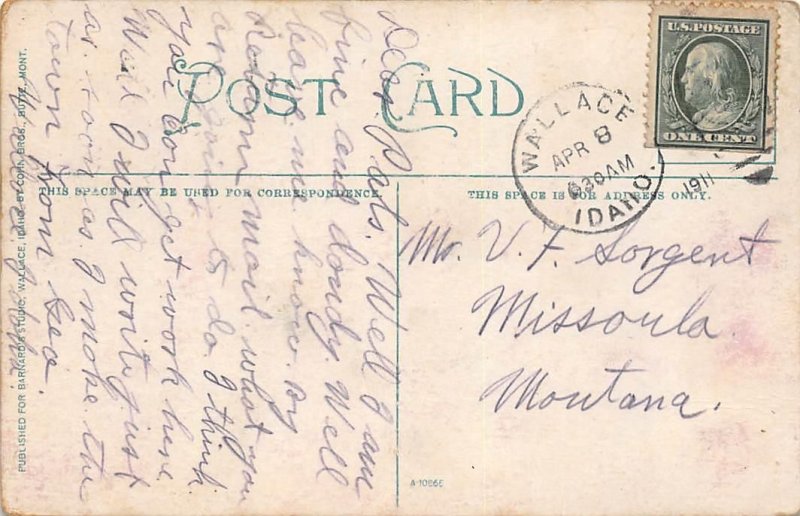 POST CARD
THIS SPACE MAY BE USED FOR CORRESPONDENCE.
THIS SPACE IS FOR ADDRESS ONLY.
U.S. POSTAGE
ONE CENT
WALLACE
APR 8
630AM
1911
IDAHO.
Mr. V. F. Sorgent
Missoula.
Montana.
Dear Pals. Well I am
fine and dandy. Well
leave me know. by
Return mail what you
are going to do. I think
you can get work here
Well I will write just
as soon as I make the
town from Geo
Wallace Idaho.
PUBLISHED FOR BARNARD'S STUDIO, WALLACE, IDAHO, BY COHN BROS., BUTTE, MONT.
A-10866